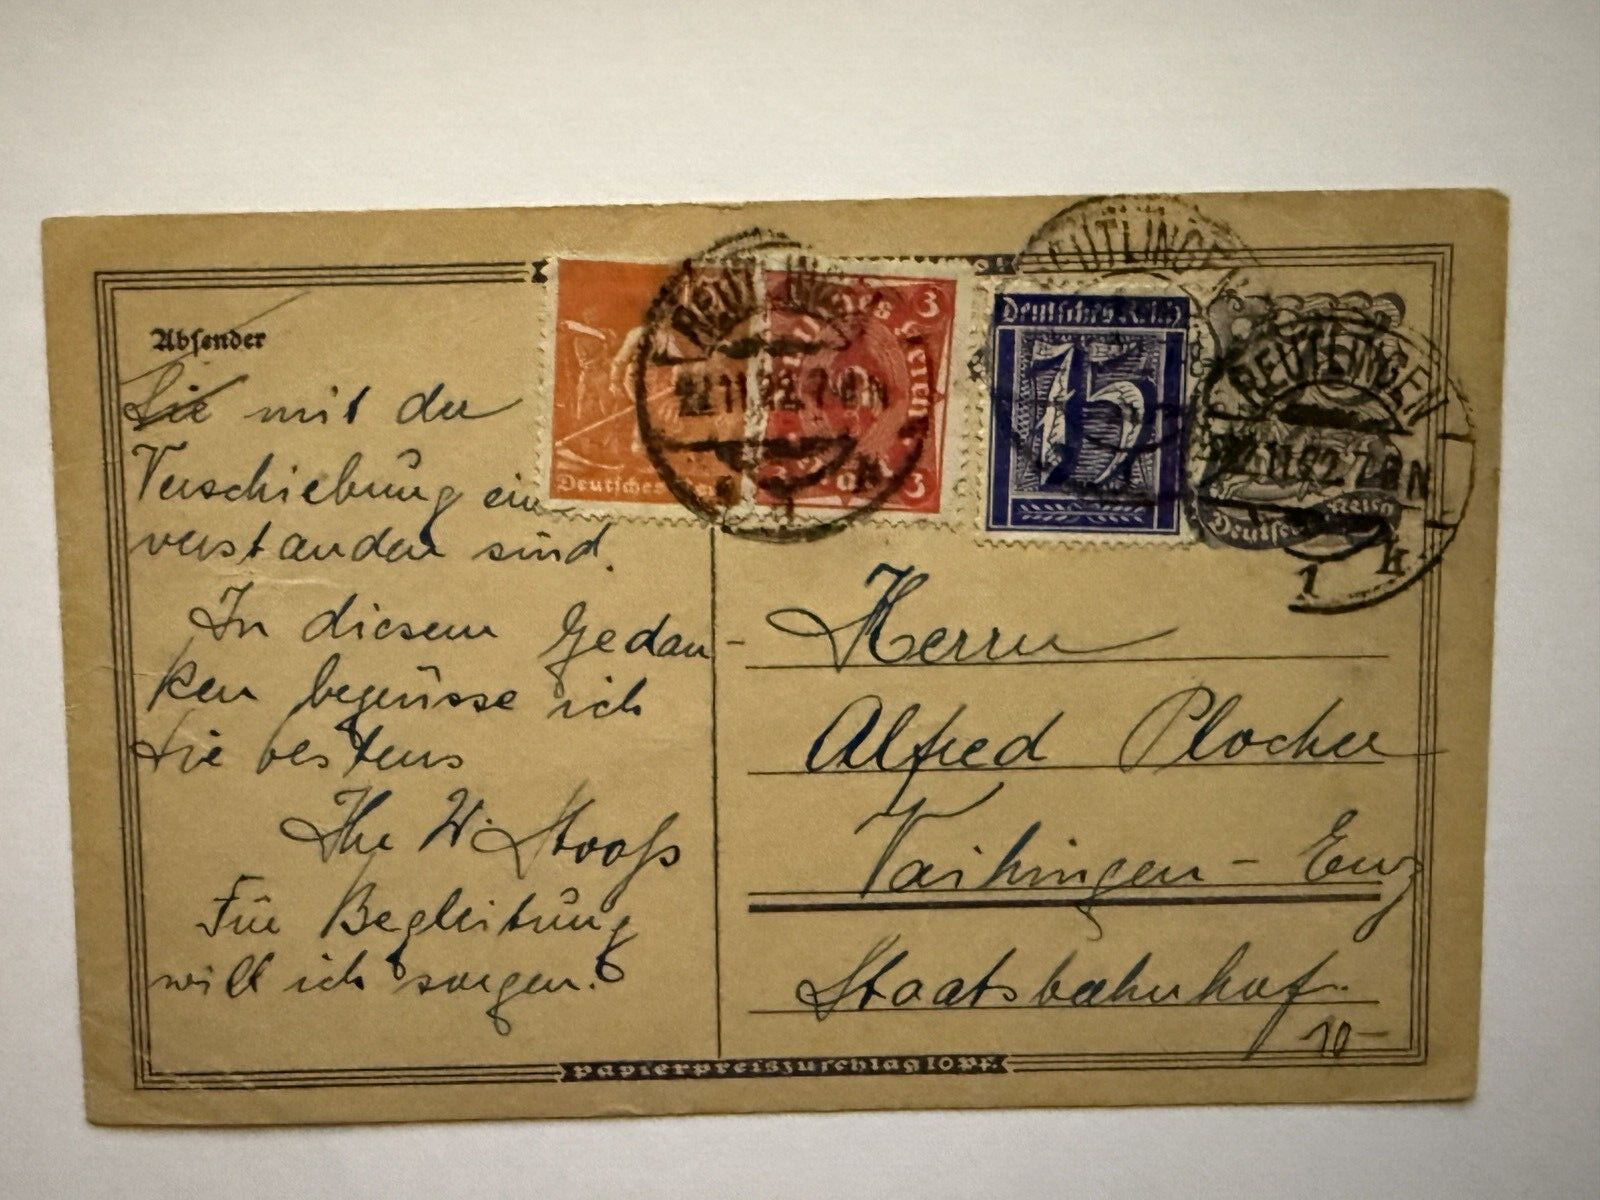 Absender
Sie mit der
Verschiebung ein
verstanden sind.
In diesem Gedan-
ken begrüsse ich
Sie bestens
Ihr W. Stooss
Für Begleitung
will ich sorgen.
Deutsches Reich
3
3
Deutsches Reich
75
REUTLINGEN
22.11.22.7-8N
REUTLINGEN
REUTLINGEN
22.11.22.7-8N
1 k
Deutsches Reich
Herrn
Alfred Plocher
Vaihingen - Enz
Staatsbahnhof.
10-
Papierpreiszuschlag 10 Pf.